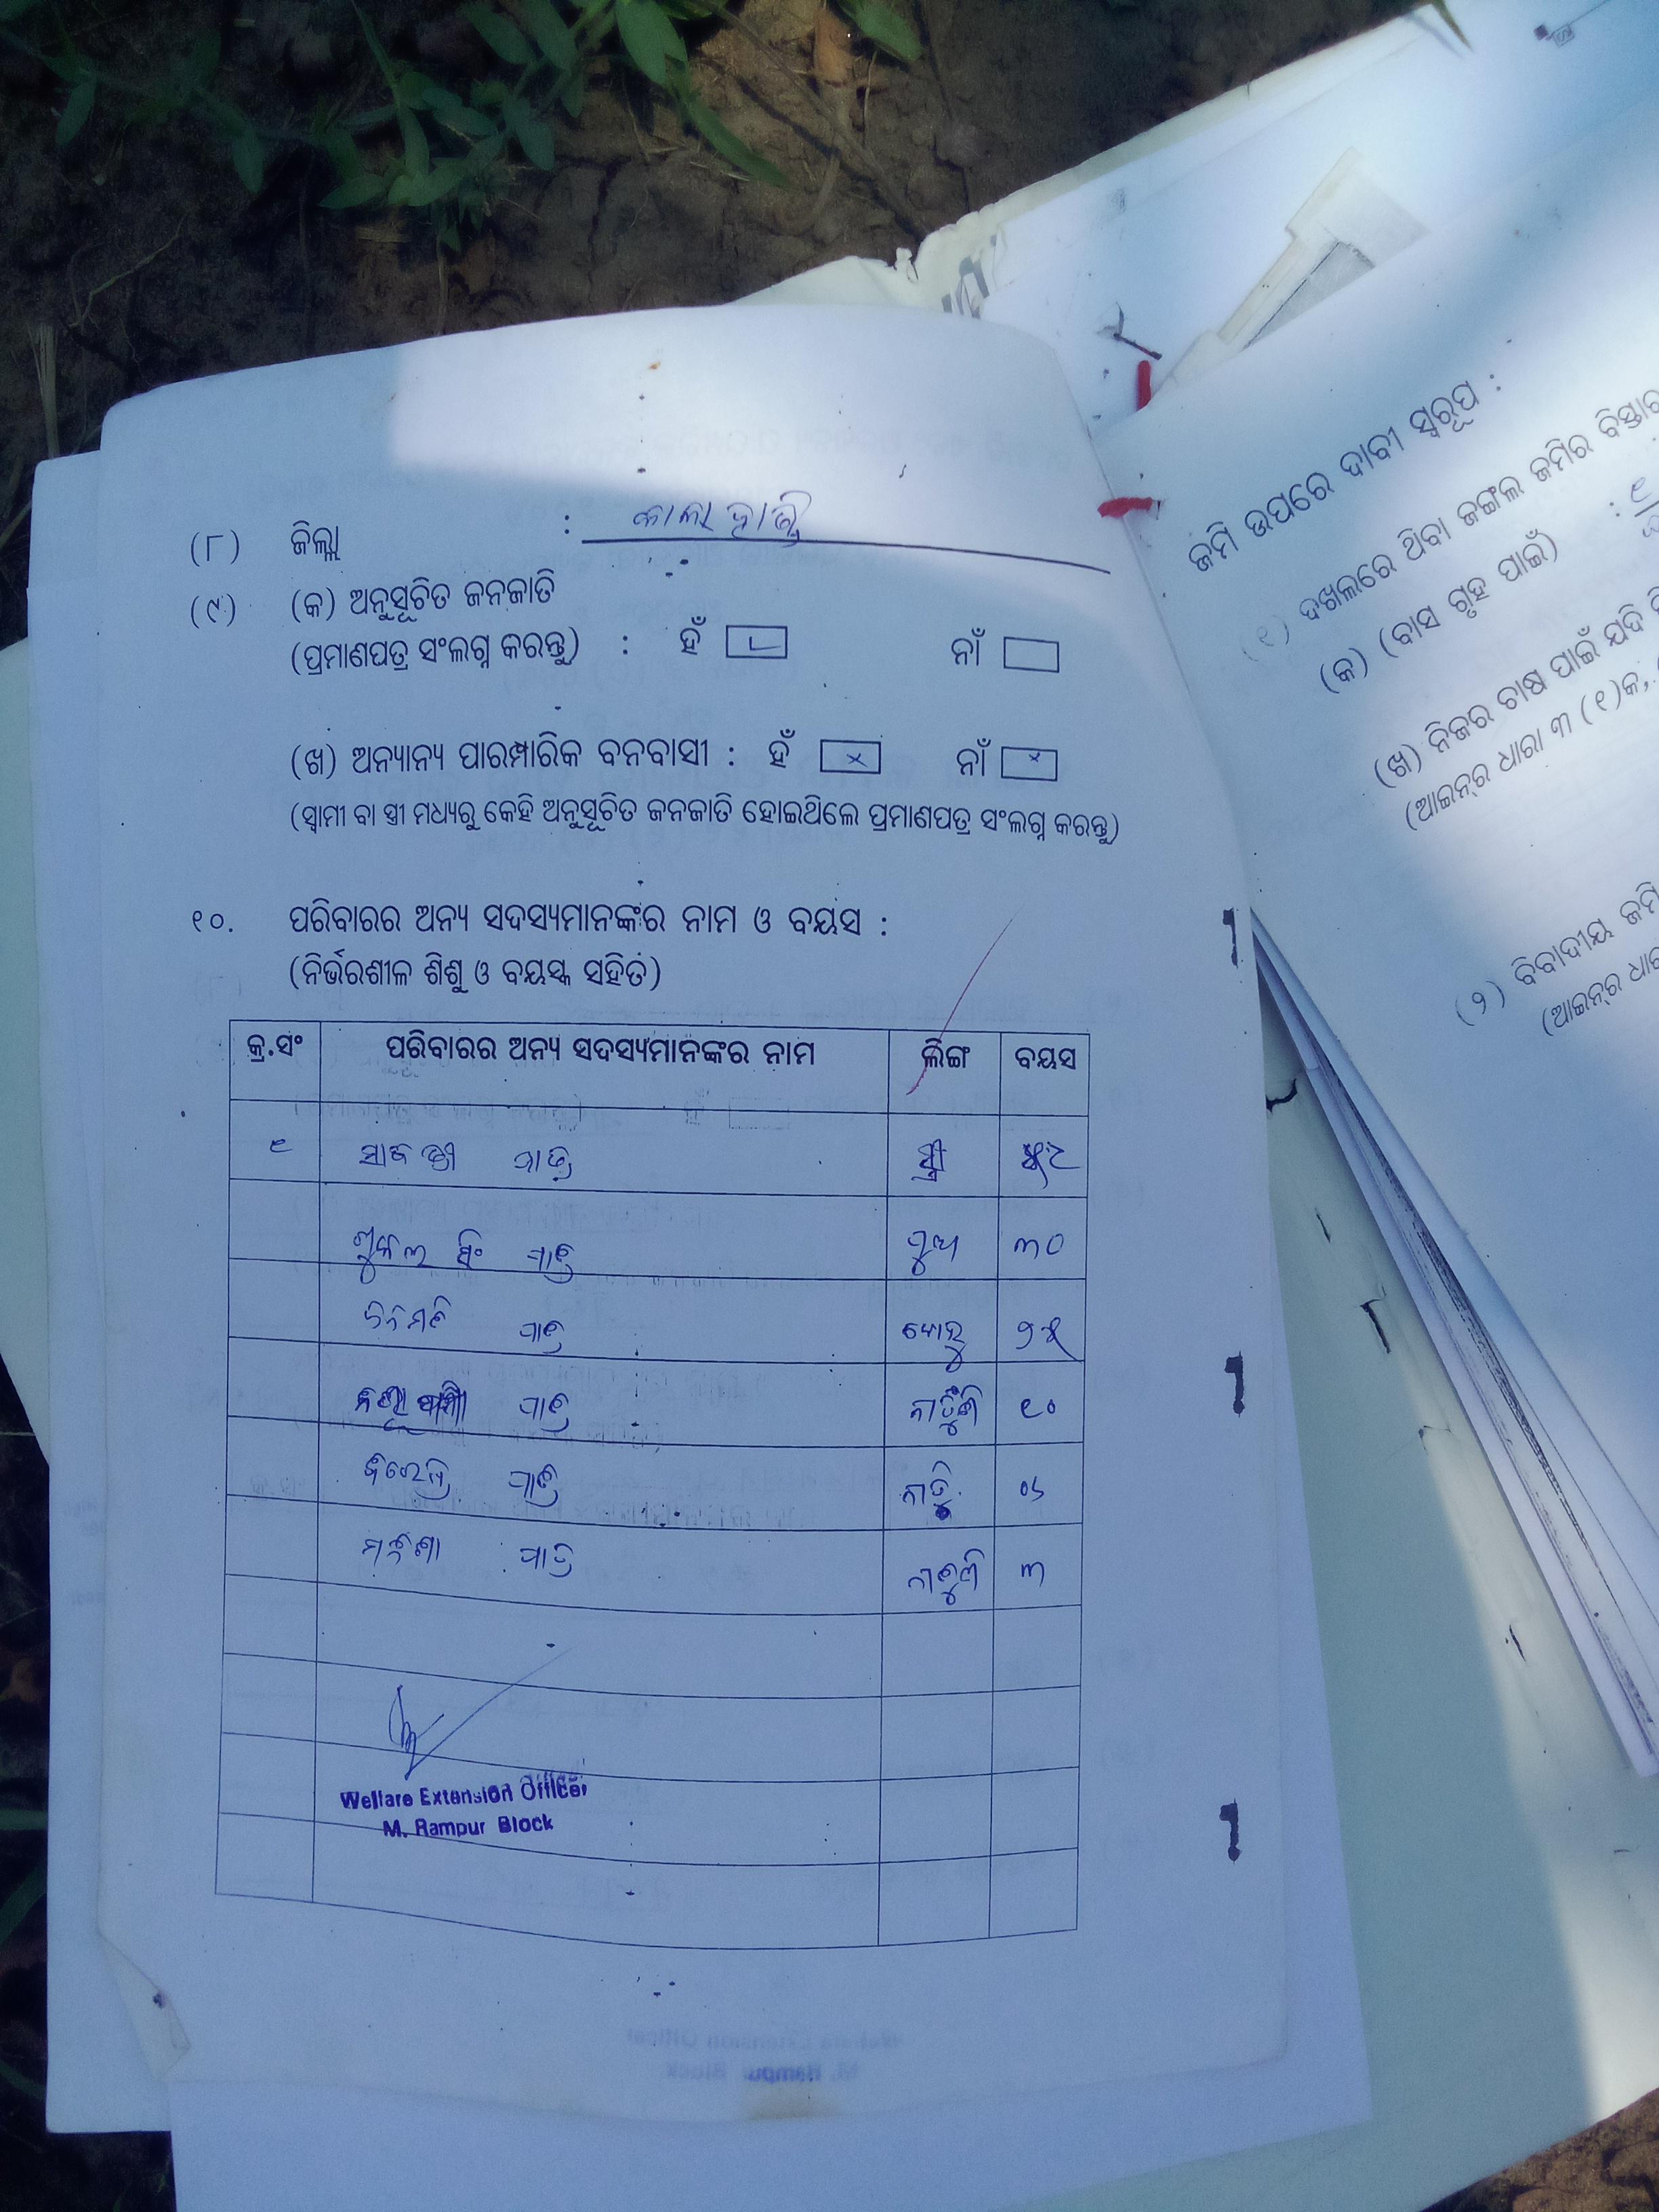 (୮) ଜିଲ୍ଲା : କାଲାହାଣ୍ଡି
(୯) (କ) ଅନୁସୂଚିତ ଜନଜାତି
(ପ୍ରମାଣପତ୍ର ସଂଲଗ୍ନ କରନ୍ତୁ) : ହଁ ନାଁ
(ଖ) ଅନ୍ୟାନ୍ୟ ପାରମ୍ପାରିକ ବନବାସୀ : ହଁ × ନାଁ ×
(ସ୍ୱାମୀ ବା ସ୍ତ୍ରୀ ମଧ୍ୟରୁ କେହି ଅନୁସୂଚିତ ଜନଜାତି ହୋଇଥିଲେ ପ୍ରମାଣପତ୍ର ସଂଲଗ୍ନ କରନ୍ତୁ)
୧୦. ପରିବାରର ଅନ୍ୟ ସଦସ୍ୟମାନଙ୍କର ନାମ ଓ ବୟସ :
(ନିର୍ଭରଶୀଳ ଶିଶୁ ଓ ବୟସ୍କ ସହିତ)
କ୍ର.ସଂ ପରିବାରର ଅନ୍ୟ ସଦସ୍ୟମାନଙ୍କର ନାମ ଲିଙ୍ଗ ବୟସ
୧ ମାଝି ସ୍ତ୍ରୀ
ସିଂ ମାଝି ପୁଅ ୩୦
ମାଝି ବୋହୂ ୨୫
ମାଝି ନାତୁଣୀ ୧୦
ମାଝି ନାତି ୦୪
ମାଝି ନାତୁଣୀ ୩
Welfare Extension Officer
M. Rampur Block
ଜମି ଉପରେ ଦାବୀ ସ୍ୱରୂପ :
(୧) ଦଖଲରେ ଥିବା ଜଙ୍ଗଲ ଜମିର
(କ) (ବାସ ଗୃହ ପାଇଁ) :
(ଖ) ନିଜର ଚାଷ ପାଇଁ ଯଦି
(ଆଇନ୍‌ର ଧାରା ୩ (୧)କ,
(୨) ବିବାଦୀୟ ଜମି
(ଆଇନ୍‌ର ଧାରା
1
1
1